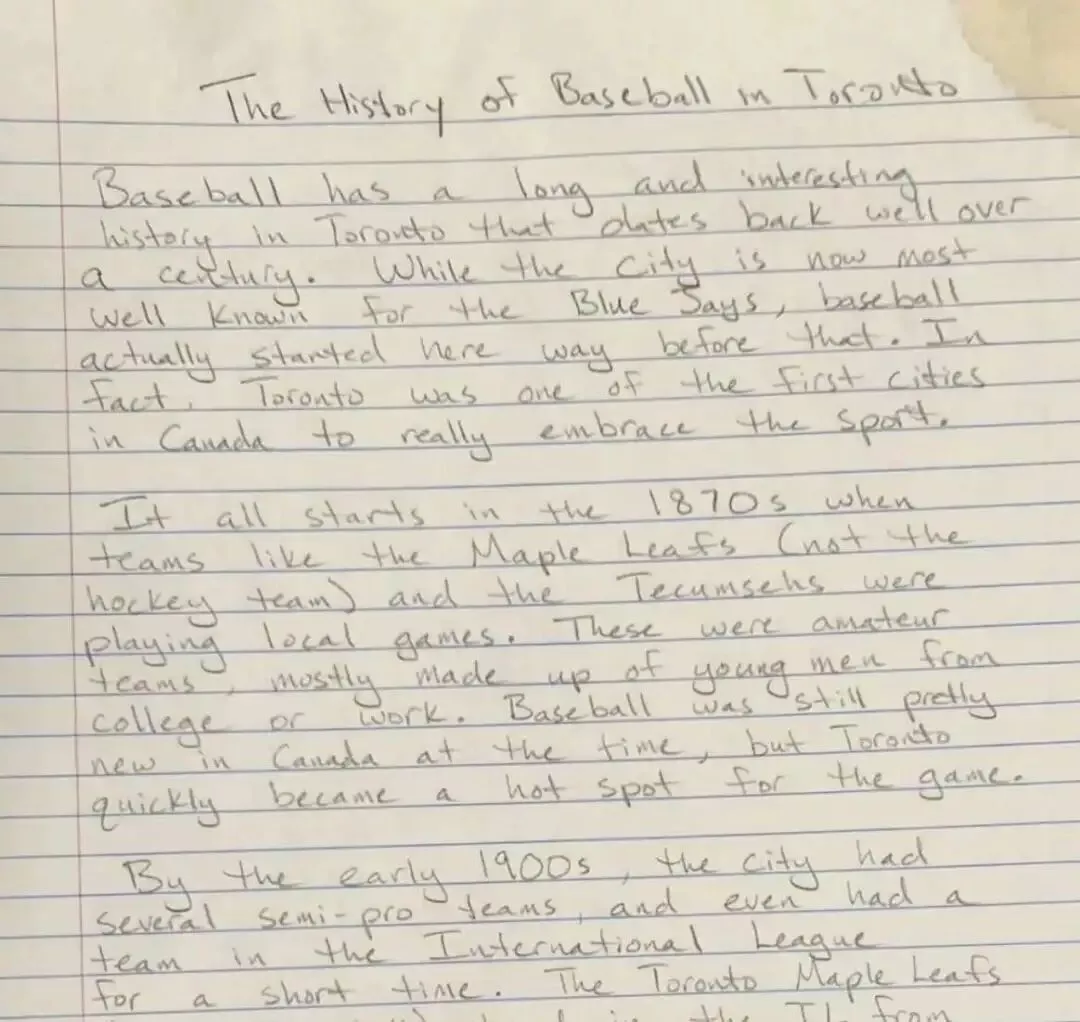 The History of Baseball in Toronto
Baseball has a long and interesting
history in Toronto that dates back well over
a century. While the city is now most
well known for the Blue Jays, baseball
actually started here way before that. In
fact, Toronto was one of the first cities
in Canada to really embrace the sport.
It all starts in the 1870s when
teams like the Maple Leafs (not the
hockey team) and the Tecumsehs were
playing local games. These were amateur
teams, mostly made up of young men from
college or work. Baseball was still pretty
new in Canada at the time, but Toronto
quickly became a hot spot for the game.
By the early 1900s, the city had
several semi-pro teams, and even had a
team in the International League
for a short time. The Toronto Maple Leafs
in the IL from